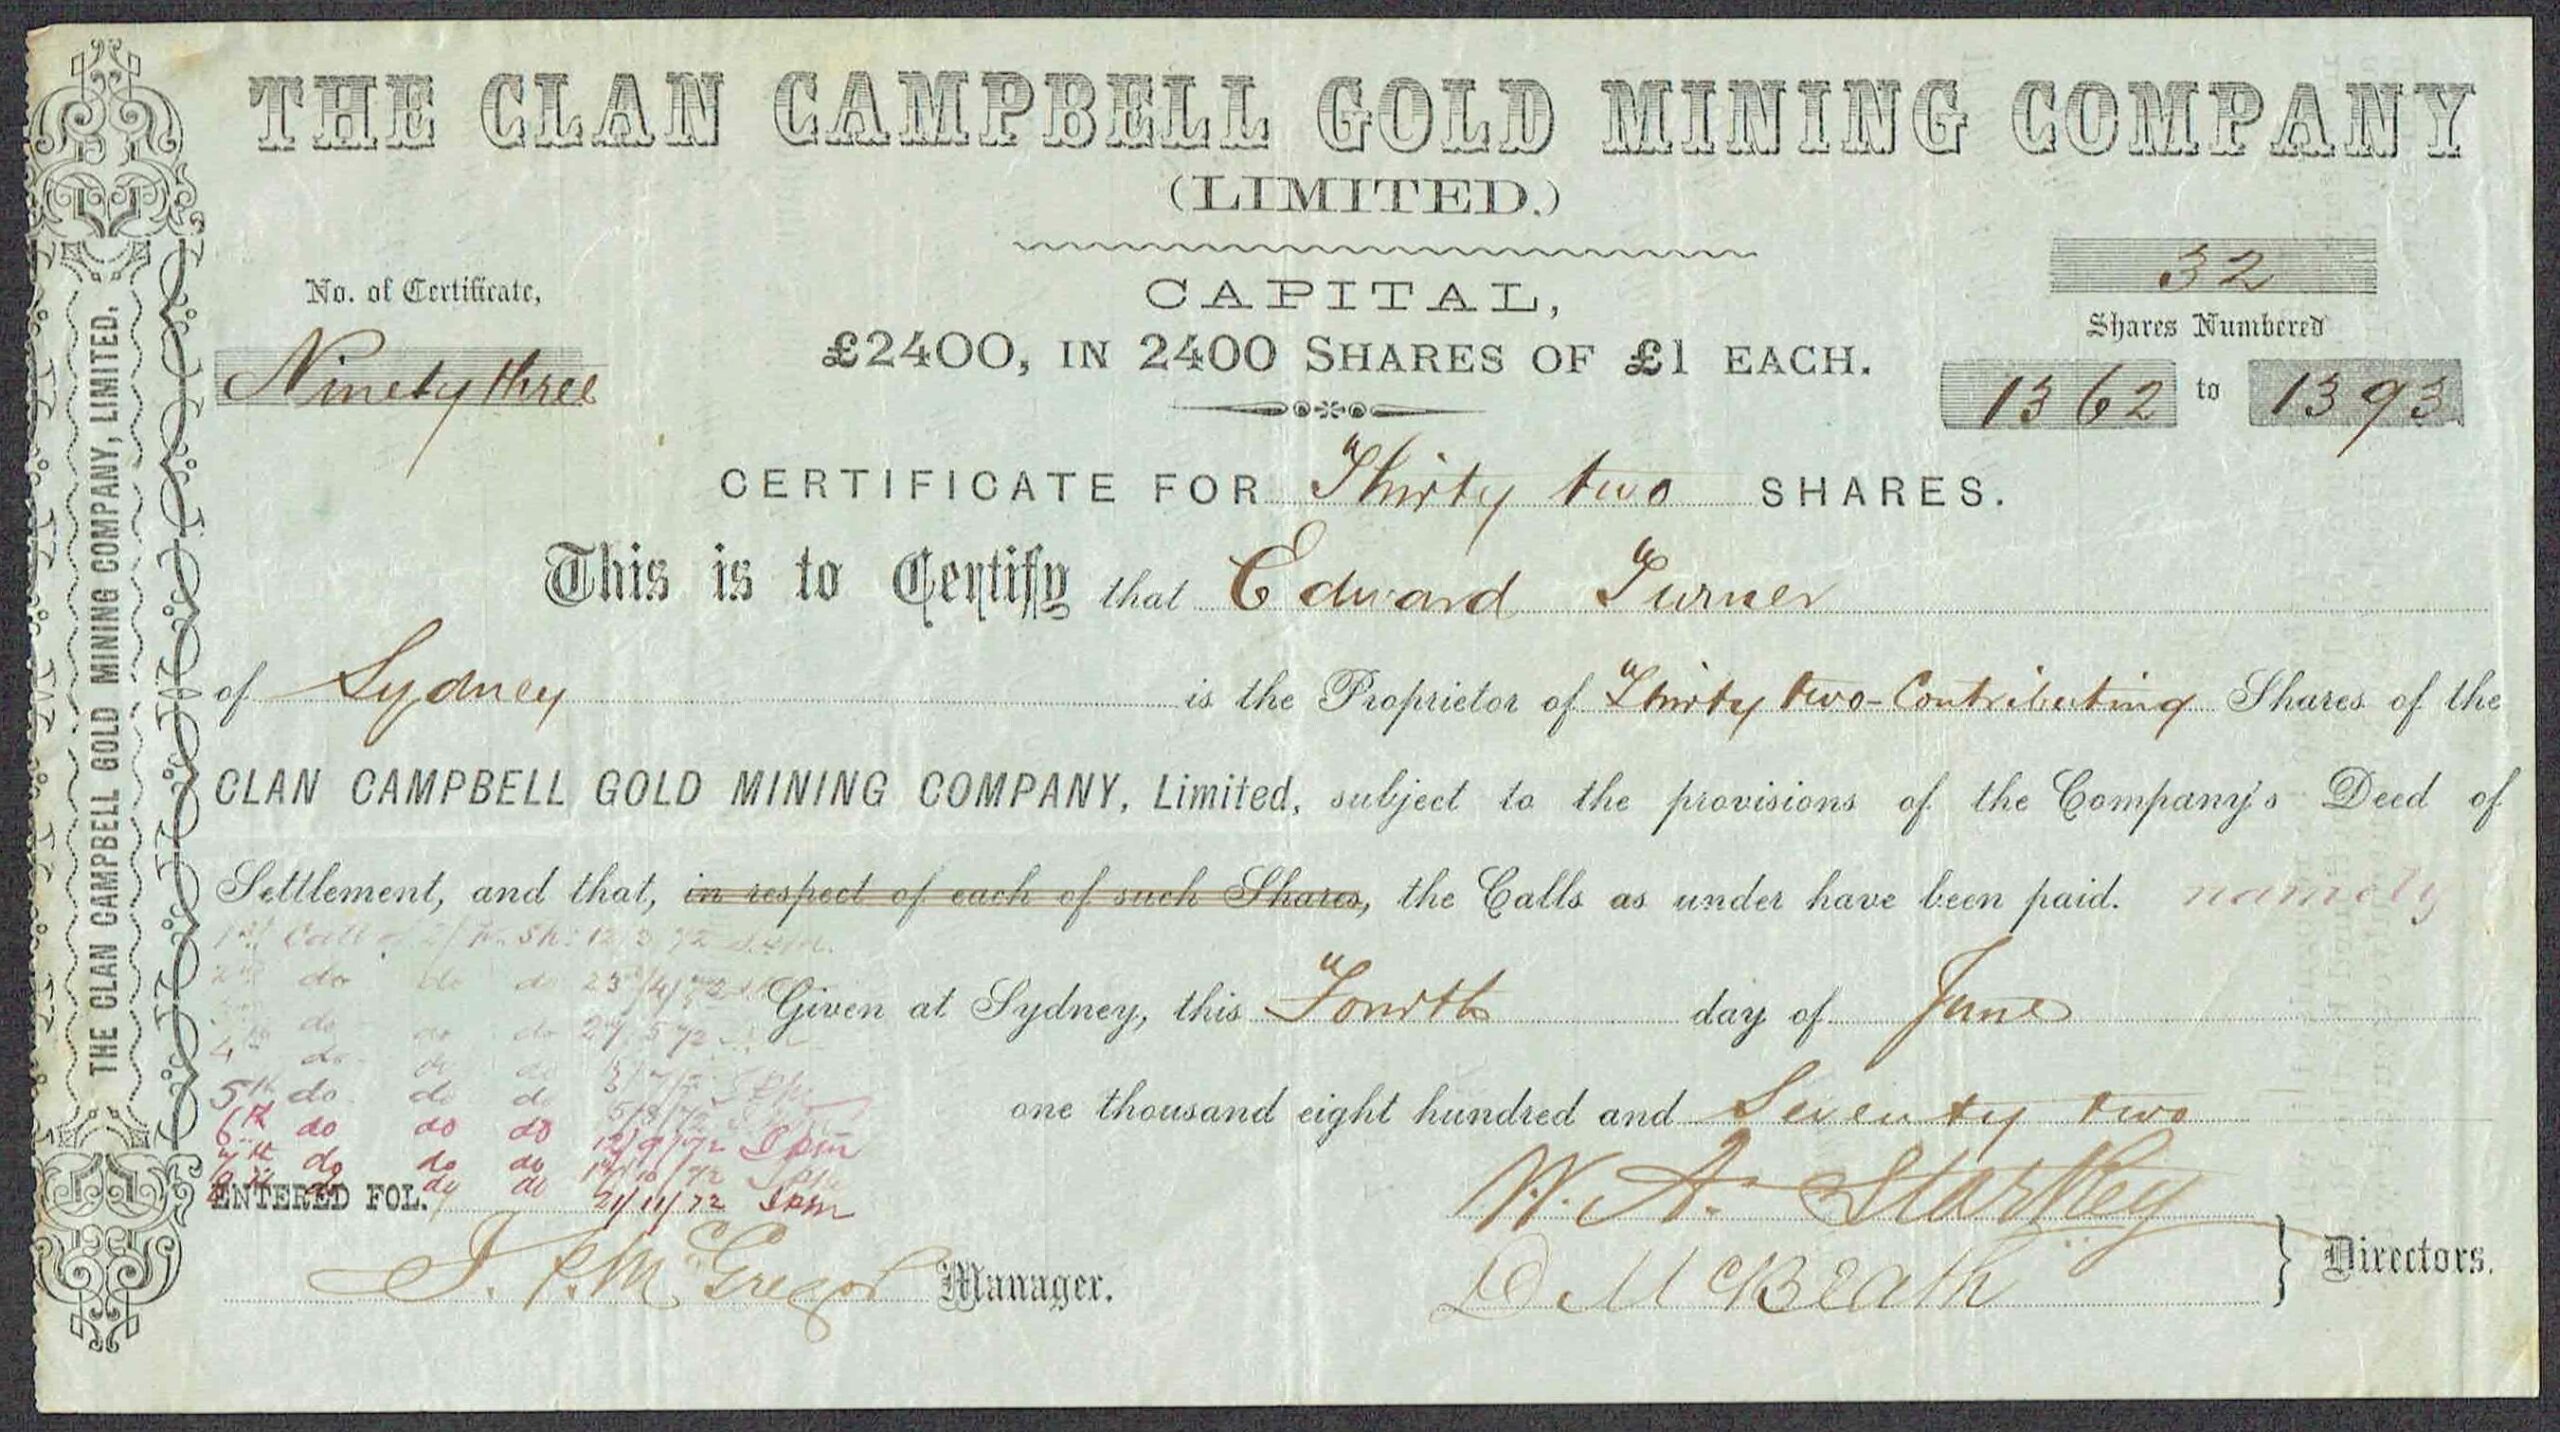 THE CLAN CAMPBELL GOLD MINING COMPANY
(LIMITED.)
THE CLAN CAMPBELL GOLD MINING COMPANY, LIMITED.
No. of Certificate,
Ninety three
CAPITAL,
£2400, IN 2400 SHARES OF £1 EACH.
32
Shares Numbered
1362 to 1393
CERTIFICATE FOR Thirty two SHARES.
This is to Certify that Edward Turner
of Sydney is the Proprietor of Thirty two-Contributing Shares of the
CLAN CAMPBELL GOLD MINING COMPANY, Limited, subject to the provisions of the Company's Deed of
Settlement, and that, in respect of each of such Shares, the Calls as under have been paid. namely
1st Call of 2/ 12 3 72
2nd do do do 23/4/72
do do do 27 5 72
4th do do do
5th do do do 5/8/72
6th do do do 12/9/72
7th do do do 17/10/72
8th do do do 21/11/72
Given at Sydney, this Fourth day of June
one thousand eight hundred and Seventy two
ENTERED FOL.
W. A. Starkey
J. P. McGregor Manager.
D McBeath
Directors.